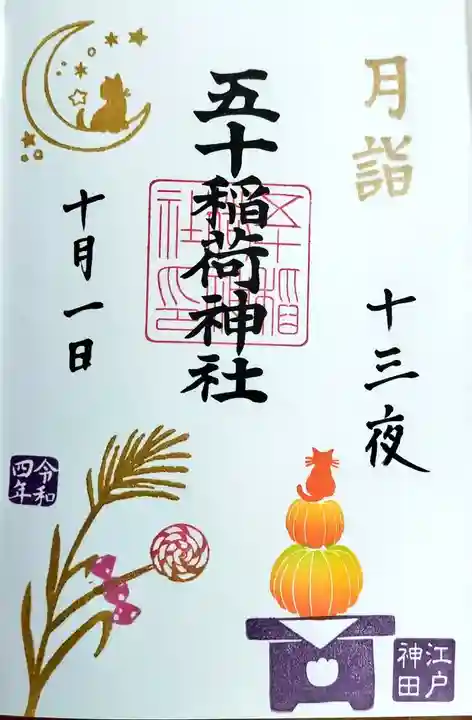 月詣
十三夜
五十稲荷神社
十月一日
令和
四年
江戸
神田